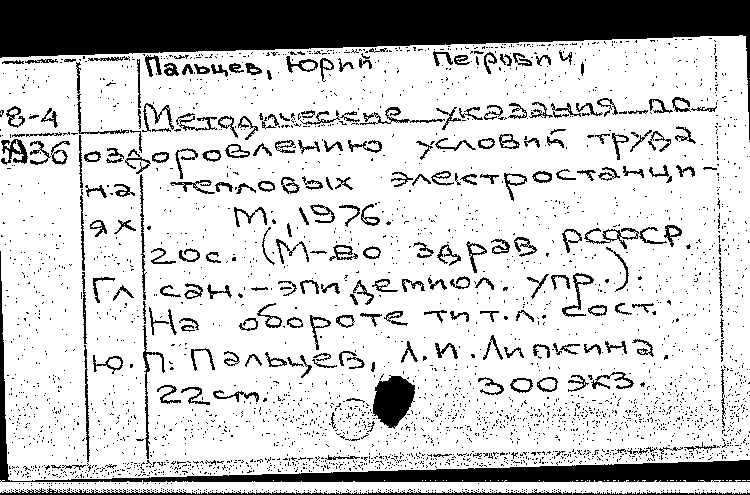 Пальцев, Юрий Петрович,
8-4 Методические указания по
936 оздоровлению условий труда
на тепловых электростанци-
ях. М., 1976.
20с. (М-во здрав. РСФСР.
Гл сан.-эпидемиол. упр.).
На обороте тит.л. сост.:
Ю.П. Пальцев, Л.И. Липкина.
22см. 300экз.